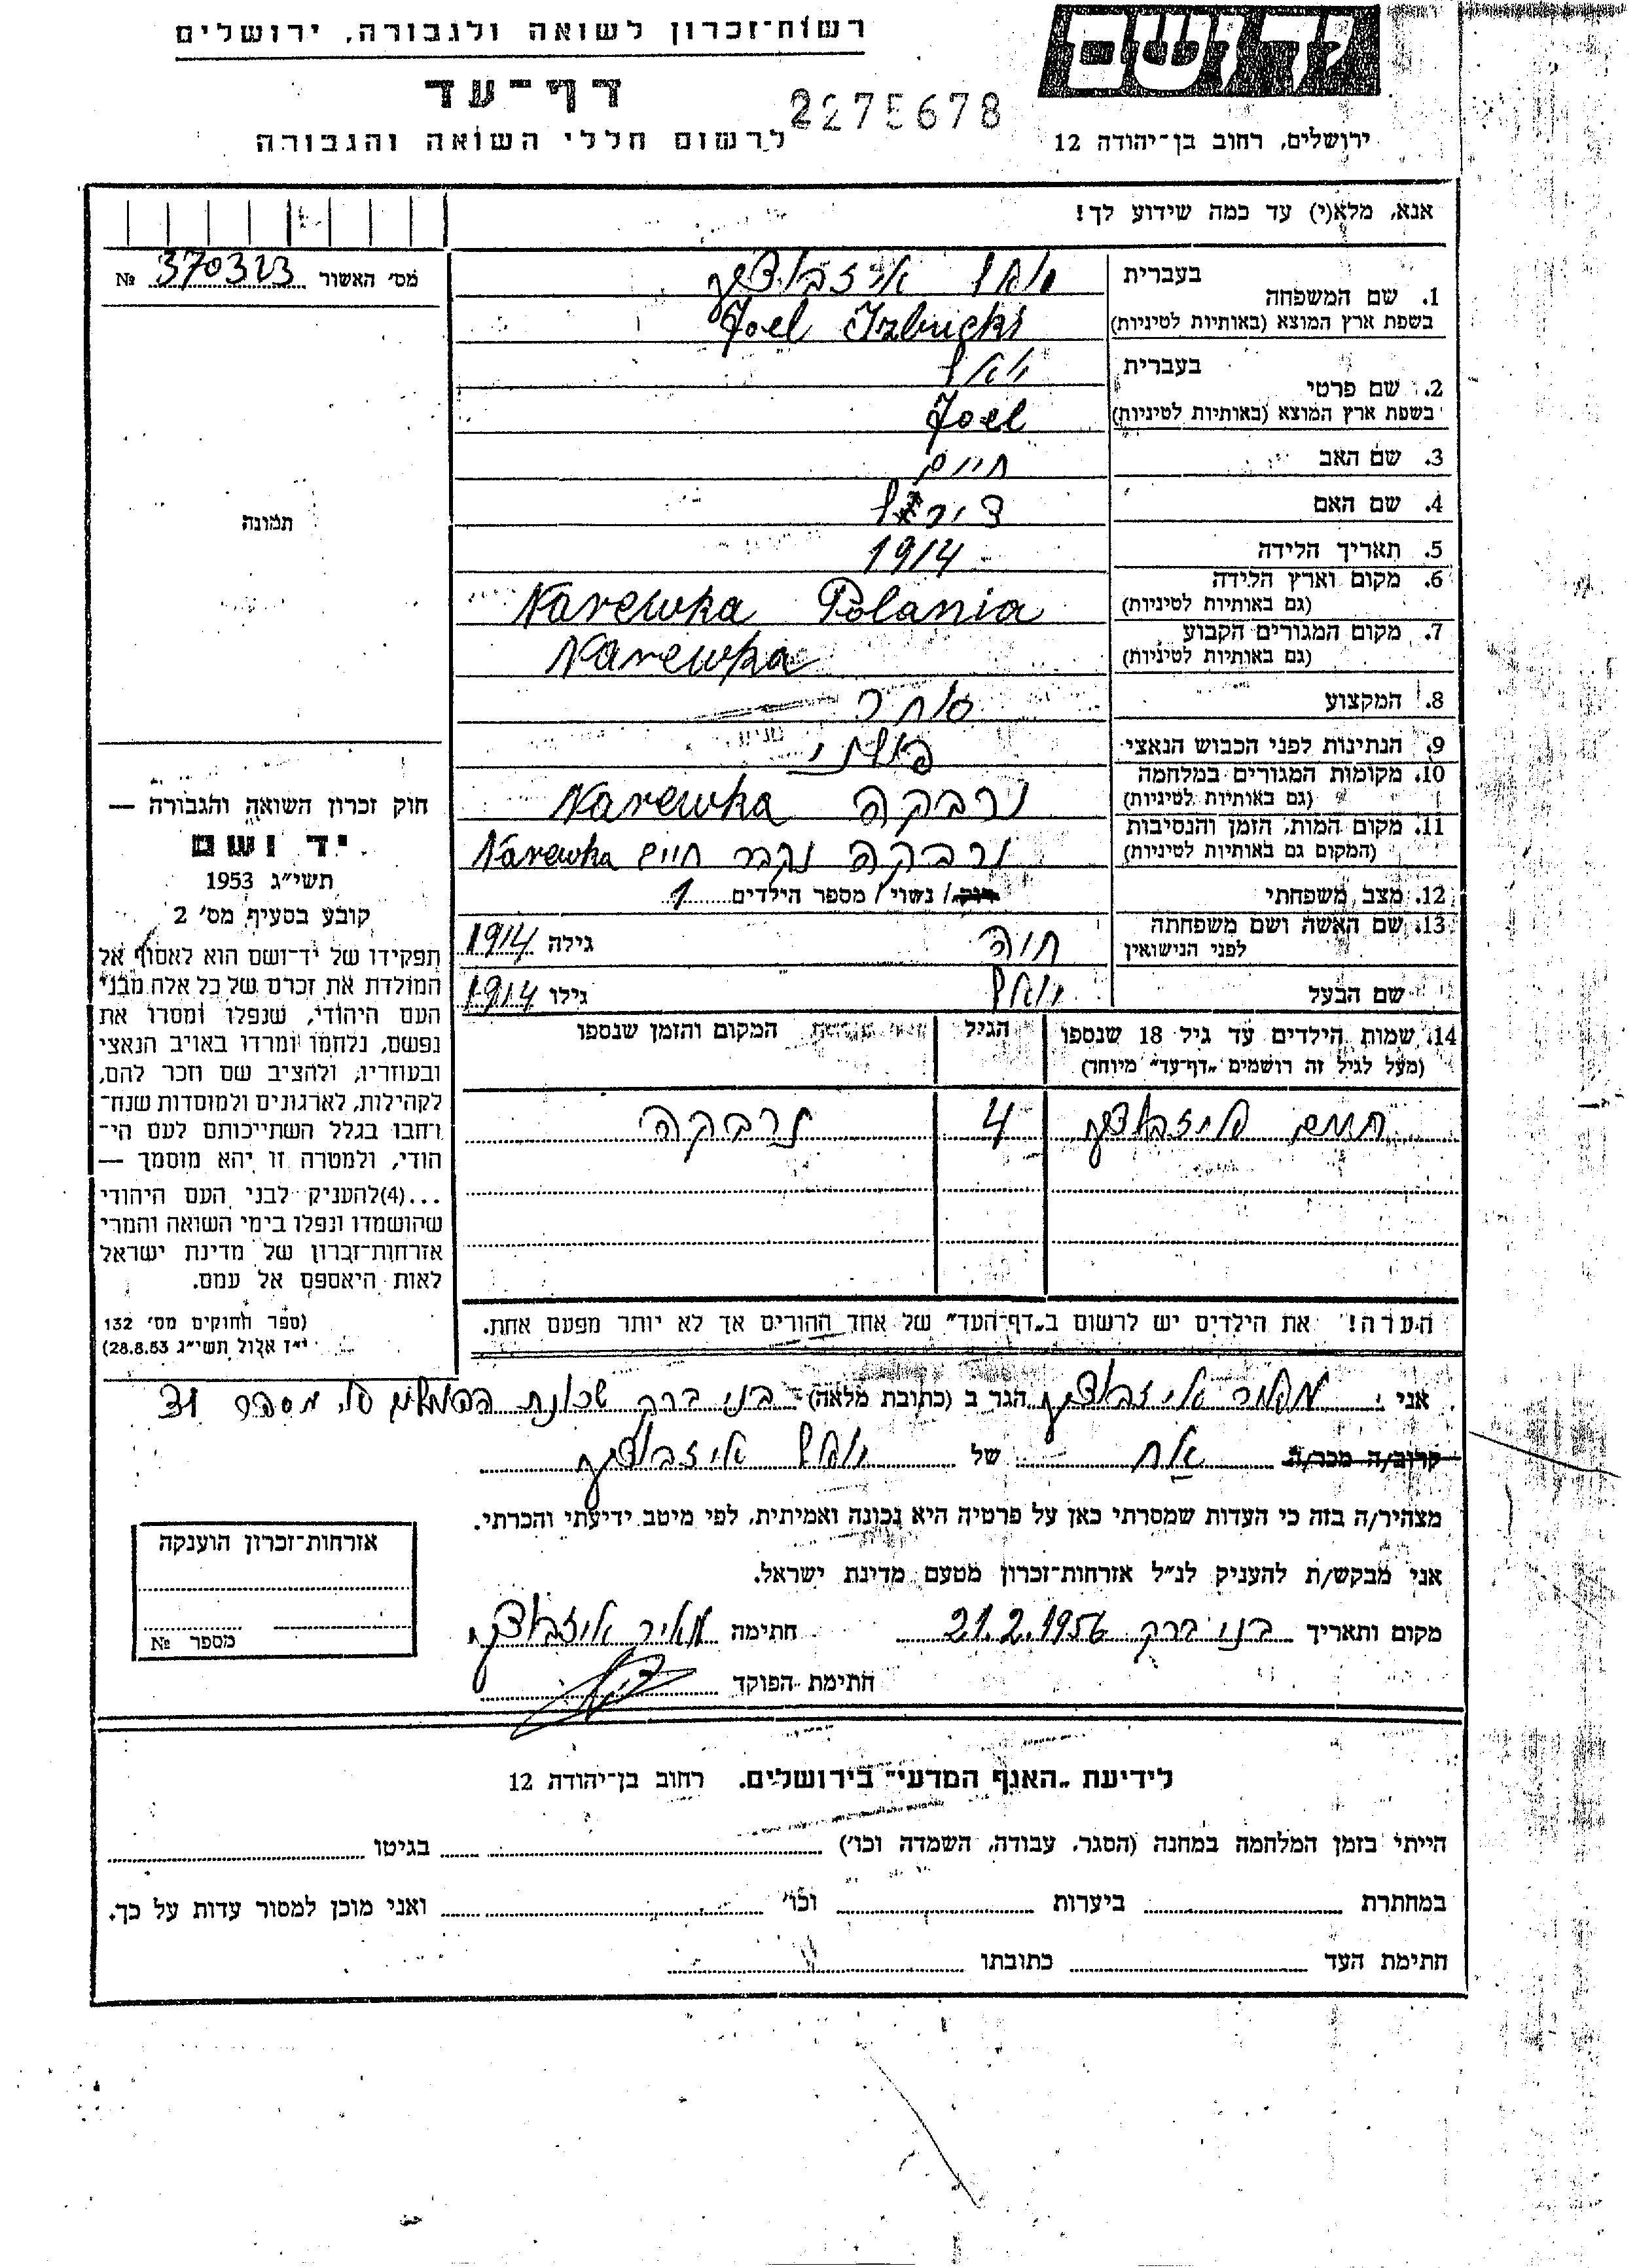 רשות־זכרון לשואה ולגבורה, ירושלים
דף־עד
2275678
לרשום חללי השואה והגבורה
ירושלים, רחוב בן־יהודה 12
אנא, מלא(י) עד כמה שידוע לך!
מס׳ האשור 370323 №
1. שם המשפחה בעברית יואל איזבוצקי
בשפת ארץ המוצא (באותיות לטיניות) Joel Izbucki
2. שם פרטי בעברית יואל
בשפת ארץ המוצא (באותיות לטיניות) Joel
3. שם האב חיים
4. שם האם
5. תאריך הלידה 1914
6. מקום וארץ הלידה (גם באותיות לטיניות) Narewka Polania
7. מקום המגורים הקבוע (גם באותיות לטיניות) Narewka
8. המקצוע סוחר
9. הנתינות לפני הכבוש הנאצי פולני
10. מקומות המגורים במלחמה (גם באותיות לטיניות) נרבקה Narewka
11. מקום המות, הזמן והנסיבות (המקום גם באותיות לטיניות) נרבקה נקבר חיים Narewka
12. מצב משפחתי רווק / נשוי / מספר הילדים 1
13. שם האשה ושם משפחתה לפני הנישואין חוה גילה 1914
שם הבעל יואל גילו 1914
14. שמות הילדים עד גיל 18 שנספו (מעל לגיל זה רושמים „דף־עד" מיוחד) הגיל המקום והזמן שנספו
חיים איזבוצקי 4 נרבקה
הערה! את הילדים יש לרשום ב„דף־העד" של אחד ההורים אך לא יותר מפעם אחת.
תמונה
חוק זכרון השואה והגבורה —
יד ושם
תשי״ג 1953
קובע בסעיף מס׳ 2
תפקידו של יד־ושם הוא לאסוף אל
המולדת את זכרם של כל אלה מבני
העם היהודי, שנפלו ומסרו את
נפשם, נלחמו ומרדו באויב הנאצי
ובעוזריו, ולהציב שם וזכר להם,
לקהילות, לארגונים ולמוסדות שנח־
רחבו בגלל השתייכותם לעם הי־
הודי, ולמטרה זו יהא מוסמך —
...(4)להעניק לבני העם היהודי
שהושמדו ונפלו בימי השואה והמרי
אזרחות־זכרון של מדינת ישראל
לאות היאספם אל עמם.
(ספר החוקים מס׳ 132
י״ז אלול תשי״ג 28.8.53)
אני מאיר איזבוצקי הגר ב (כתובת מלאה) בני ברק שכונת מספר 31
קרוב/ה מכר/ה אח של יואל איזבוצקי
מצהיר/ה בזה כי העדות שמסרתי כאן על פרטיה היא נכונה ואמיתית, לפי מיטב ידיעתי והכרתי.
אני מבקש/ת להעניק לנ״ל אזרחות־זכרון מטעם מדינת ישראל.
מקום ותאריך בני ברק 21.2.1956 חתימה מאיר איזבוצקי
חתימת הפוקד
אזרחות־זכרון הוענקה
מספר №
לידיעת „האגף המדעי" בירושלים, רחוב בן־יהודה 12
הייתי בזמן המלחמה במחנה (הסגר, עבודה, השמדה וכו׳) בגיטו
במחתרת ביערות וכו׳ ואני מוכן למסור עדות על כך.
חתימת העד כתובתו